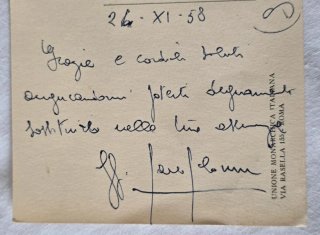 24 - XI - 58
Grazie e cordiali saluti
augurandomi poterti degnamente
sostituirlo nella Sua
UNIONE MONARCHICA ITALIANA
VIA RASELLA 155 - ROMA